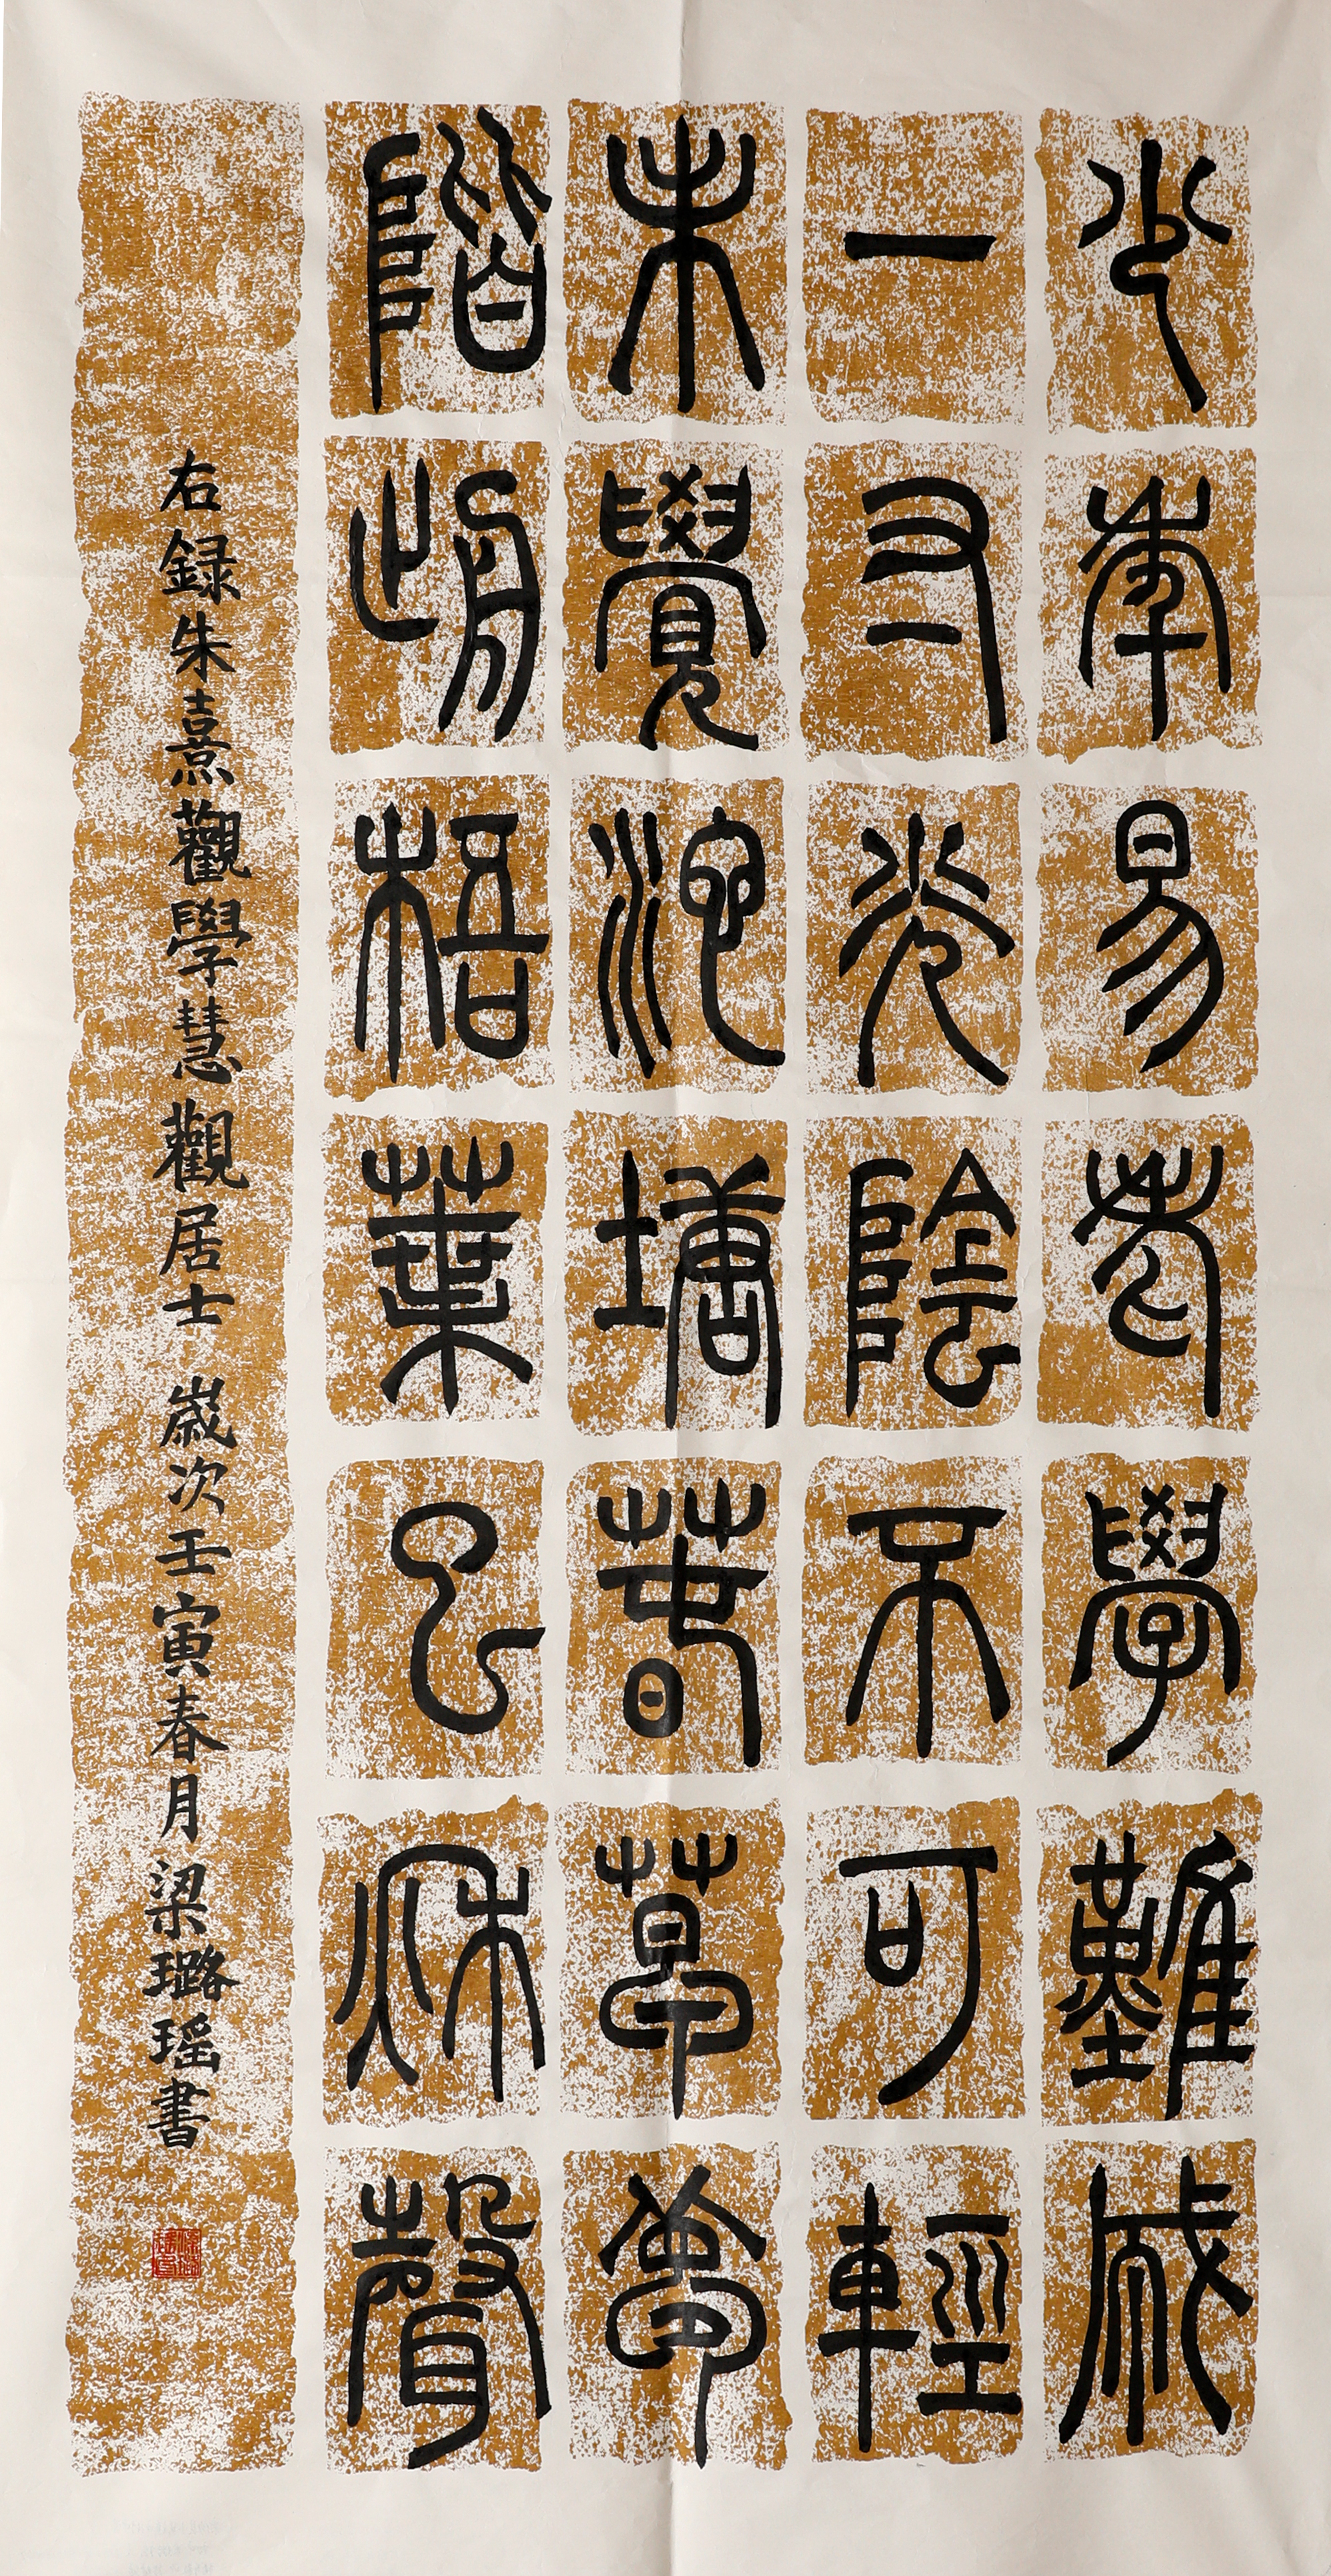 少年易老學難成
一寸光陰不可輕
未覺池塘春草夢
階前梧葉已秋聲
右録朱熹觀學慧觀居士 歲次壬寅春月梁璐瑶書